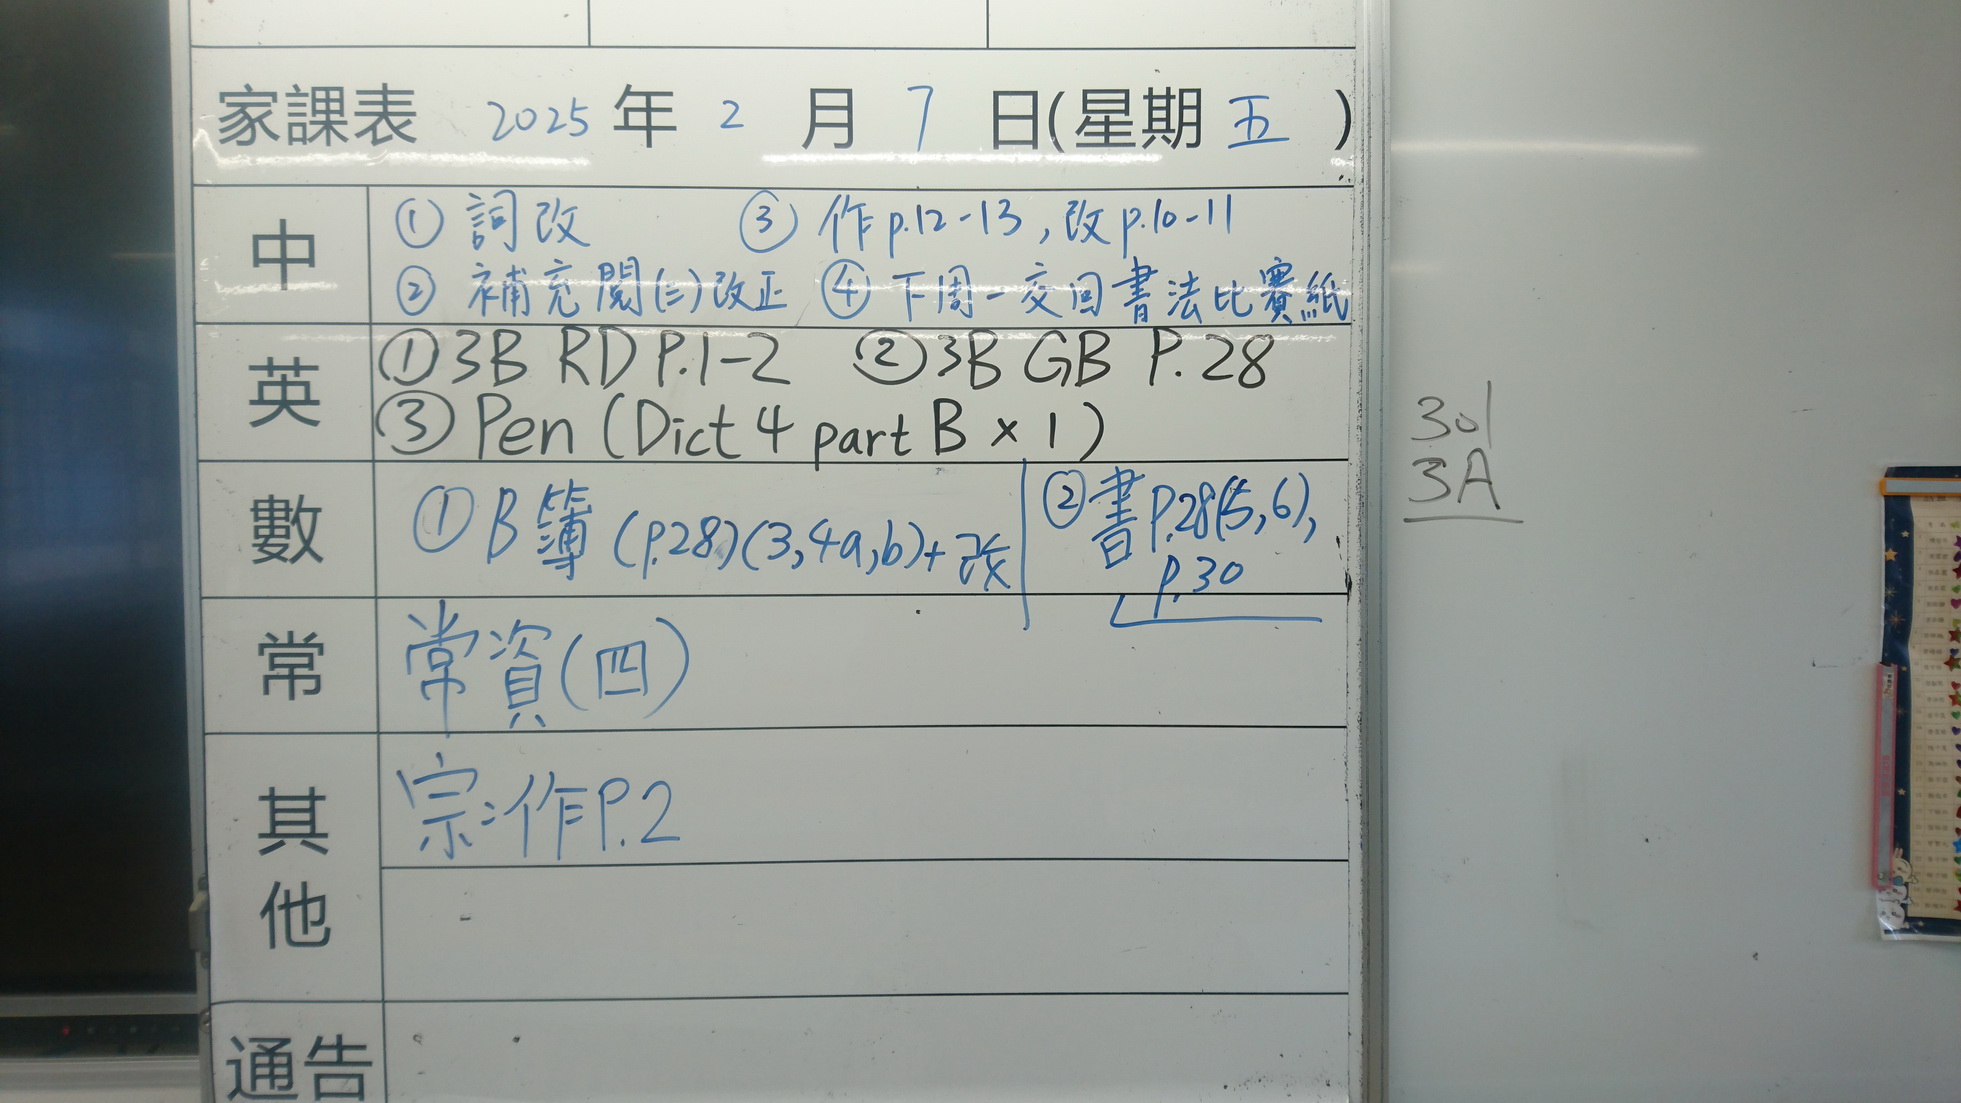 家課表 2025 年 2 月 7 日(星期 五 )
中
① 詞改 ③ 作p.12-13,改p.10-11
② 補充閱(三)改正 ④ 下周一交回書法比賽紙
英
① 3B RD P.1-2 ② 3B GB P.28
③ Pen (Dict 4 part B × 1)
數
① B簿 (p.28)(3,4a,b)+改
② 書P.28(5,6),
p.30
常
常資(四)
其他
宗:作P.2
通告
301
3A